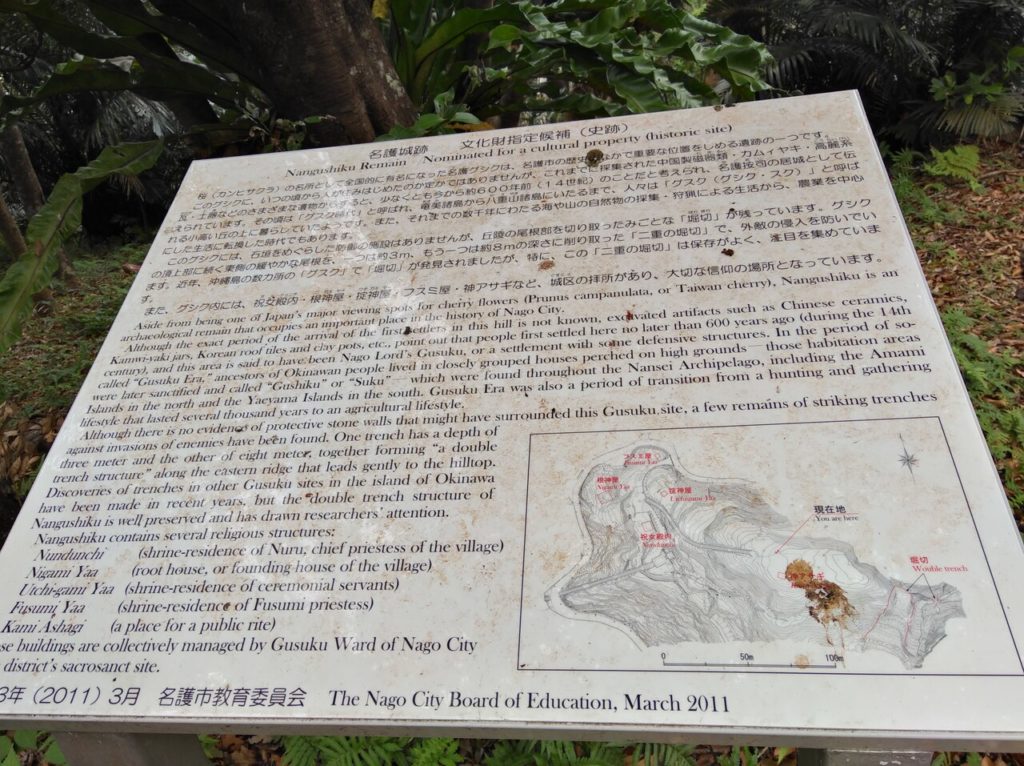 名護城跡　文化財指定候補（史跡）
Nangushiku Remain / Nominated for a cultural property (historic site)
桜（カンヒサクラ）の名所として全国的に有名になった名護グシクは、名護市の歴史のなかで重要な位置をしめる遺跡の一つです。
このグシクに、いつの頃から人が住みはじめたのか定かではありませんが、これまでに採集された中国製磁器類・カムィヤキ・高麗系
瓦・土器などのさまざまな遺物からすると、少なくとも今から約600年前（14世紀）のことだと考えられ、名護按司の居城として伝
えられています。その頃は「グスク時代」と呼ばれ、奄美諸島から八重山諸島にいたるまで、人々は「グスク（グシク・スク）」と呼ば
れる小高い丘の上に暮らしていたようです。また、それまでの数千年にわたる海や山の自然物の採集・狩猟による生活から、農業を中心
にした生活に転換した時代でもあります。
このグシクには、石垣をめぐらした防御の施設はありませんが、丘陵の尾根部を切り取ったみごとな「堀切」が残っています。グシク
の頂上部に続く東側の緩やかな尾根を、一つは約3m、もう一つは約8mの深さに削り取った「二重の堀切」で、外敵の侵入を防いでい
ます。近年、沖縄島の数カ所の「グスク」で「堀切」が発見されましたが、特に、この「二重の堀切」は保存がよく、注目を集めていま
す。
また、グシク内には、祝女殿内・根神屋・掟神屋・フスミ屋・神アサギなど、城区の拝所があり、大切な信仰の場所となっています。
Aside from being one of Japan's major viewing spots for cherry flowers (Prunus campanulata, or Taiwan cherry), Nangushiku is an
archaeological remain that occupies an important place in the history of Nago City.
Although the exact period of the arrival of the first settlers in this hill is not known, excavated artifacts such as Chinese ceramics,
Kamwi-yaki jars, Korean roof tiles and clay pots, etc., point out that people first settled here no later than 600 years ago (during the 14th
century), and this area is said to have been Nago Lord's Gusuku, or a settlement with some defensive structures. In the period of so-
called "Gusuku Era," ancestors of Okinawan people lived in closely grouped houses perched on high grounds—those habitation areas
were later sanctified and called "Gushiku" or "Suku"—which were found throughout the Nansei Archipelago, including the Amami
Islands in the north and the Yaeyama Islands in the south. Gusuku Era was also a period of transition from a hunting and gathering
lifestyle that lasted several thousand years to an agricultural lifestyle.
Although there is no evidence of protective stone walls that might have surrounded this Gusuku site, a few remains of striking trenches
against invasions of enemies have been found. One trench has a depth of
three meter and the other of eight meter, together forming "a double
trench structure" along the eastern ridge that leads gently to the hilltop.
Discoveries of trenches in other Gusuku sites in the island of Okinawa
have been made in recent years, but the double trench structure of
Nangushiku is well preserved and has drawn researchers' attention.
Nangushiku contains several religious structures:
Nundunchi (shrine-residence of Nuru, chief priestess of the village)
Nigami Yaa (root house, or founding house of the village)
Utchi-gami Yaa (shrine-residence of ceremonial servants)
Fusumi Yaa (shrine-residence of Fusumi priestess)
Kami Ashagi (a place for a public rite)
se buildings are collectively managed by Gusuku Ward of Nago City
district's sacrosanct site.
3年（2011）3月　名護市教育委員会　The Nago City Board of Education, March 2011
フスミ屋
Fusumi Yaa
根神屋
Nigami Yaa
掟神屋
Utchigami Yaa
祝女殿内
Nundunchi
現在地
You are here
神アサギ
堀切
Wouble trench
0 50m 100m